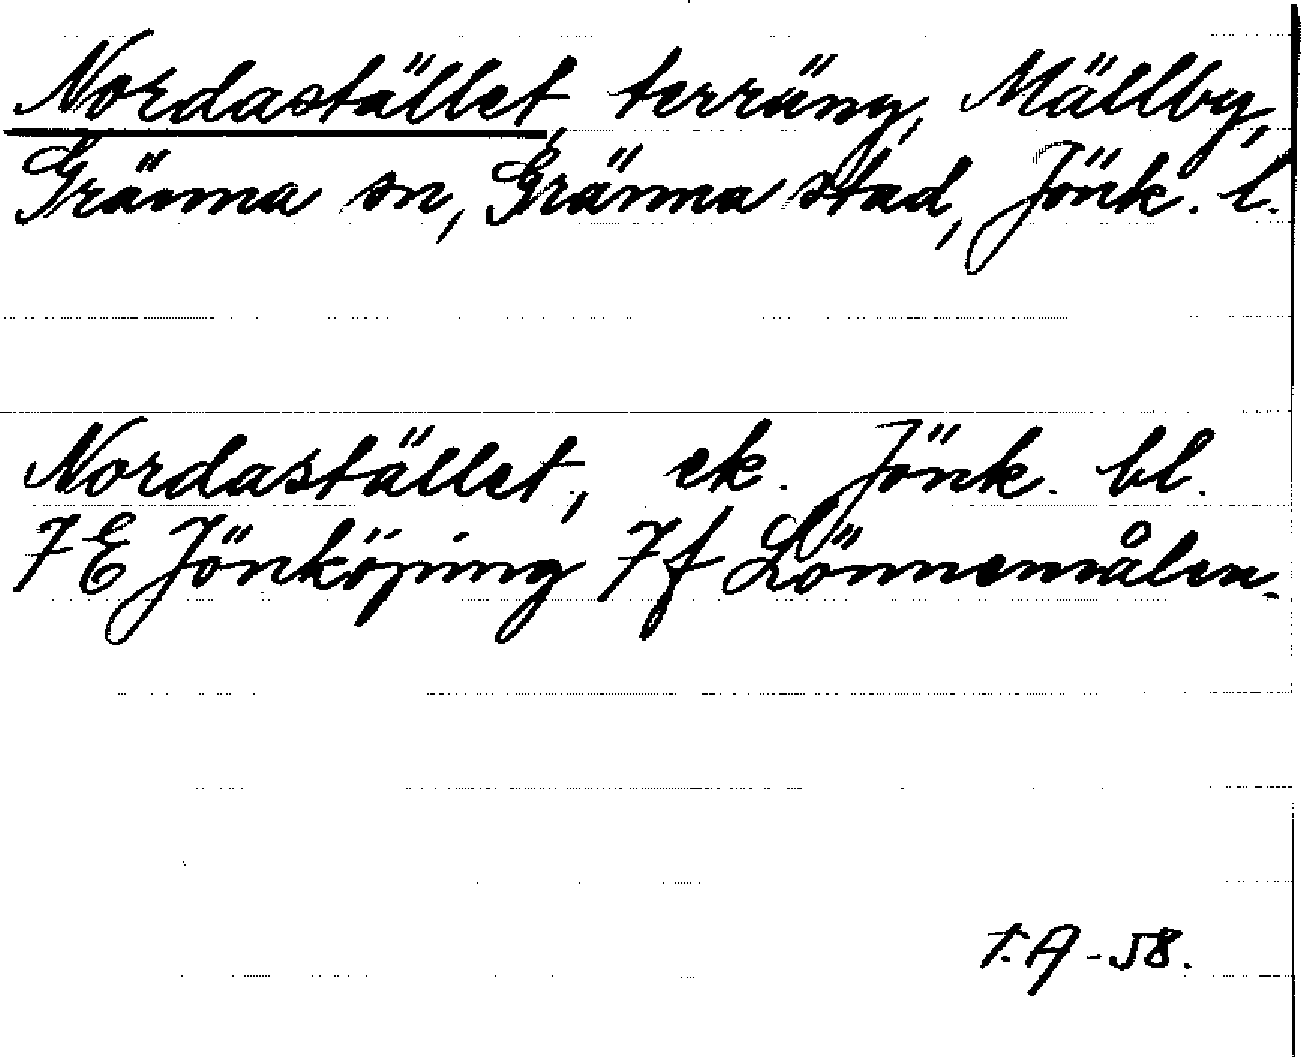 Nordastället, terräng, Mällby,
Gränna sn, Gränna stad, Jönk. l.
Nordastället, ek. Jönk. bl.
7E Jönköping 7f Lönnemålen.
T.A-58.